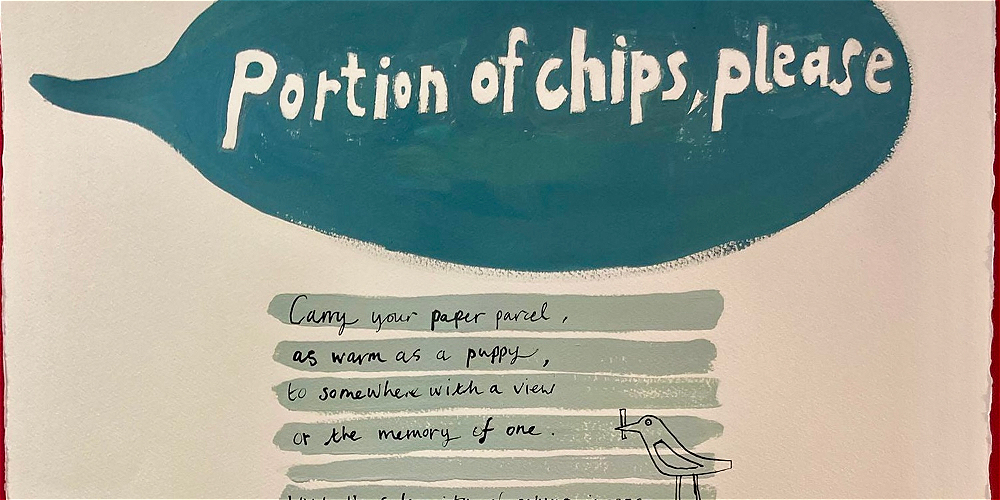 Portion of chips, please
Carry your paper parcel,
as warm as a puppy,
to somewhere with a view
or the memory of one.